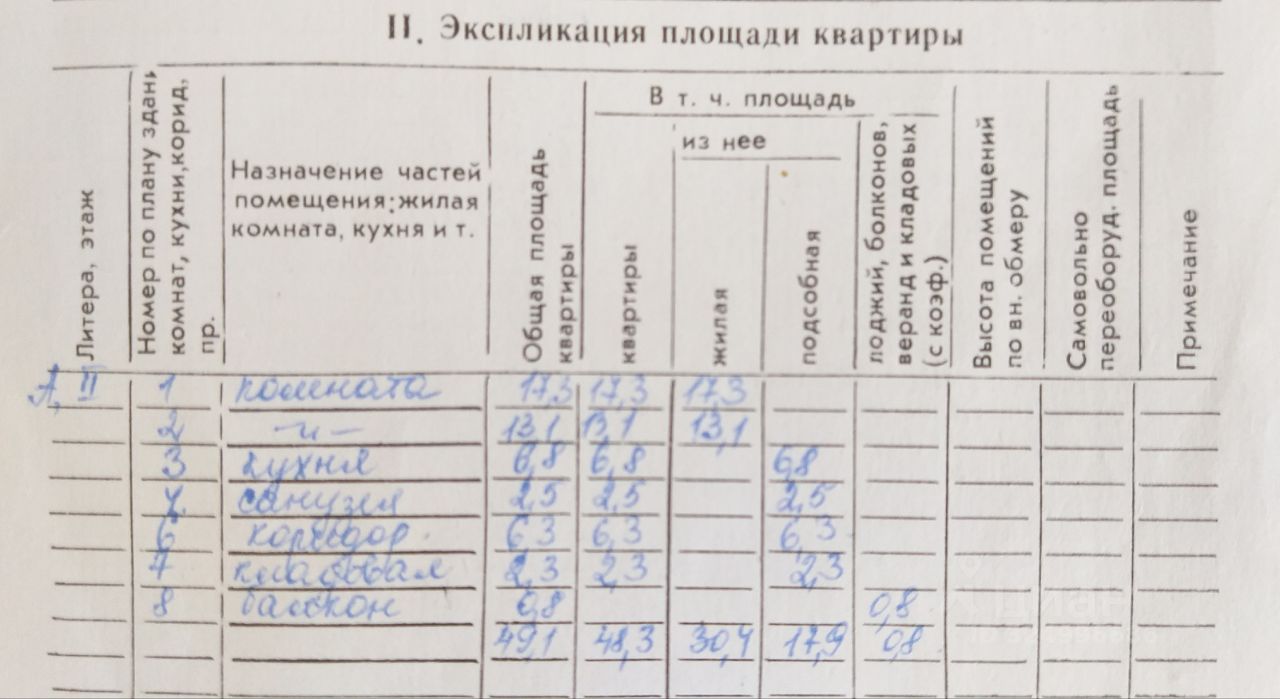 II. Экспликация площади квартиры
Литера, этаж
Номер по плану здан
комнат, кухни, корид,
пр.
Назначение частей
помещения: жилая
комната, кухня и т.
Общая площадь
квартиры
В т. ч. площадь
квартиры
из нее
жилая
подсобная
лоджий, болконов,
веранд и кладовых
(с коэф.)
Высота помещений
по вн. обмеру
Самовольно
переоборуд. площадь
Примечание
А, II 1 комната 17,3 17,3 17,3
2 —„— 13,1 13,1 13,1
3 кухня 6,8 6,8 6,8
санузел 2,5 2,5 2,5
6 коридор 6,3 6,3 6,3
7 кладовая 2,3 2,3 2,3
8 балкон 0,8 0,8
49,1 48,3 30,4 17,9 0,8